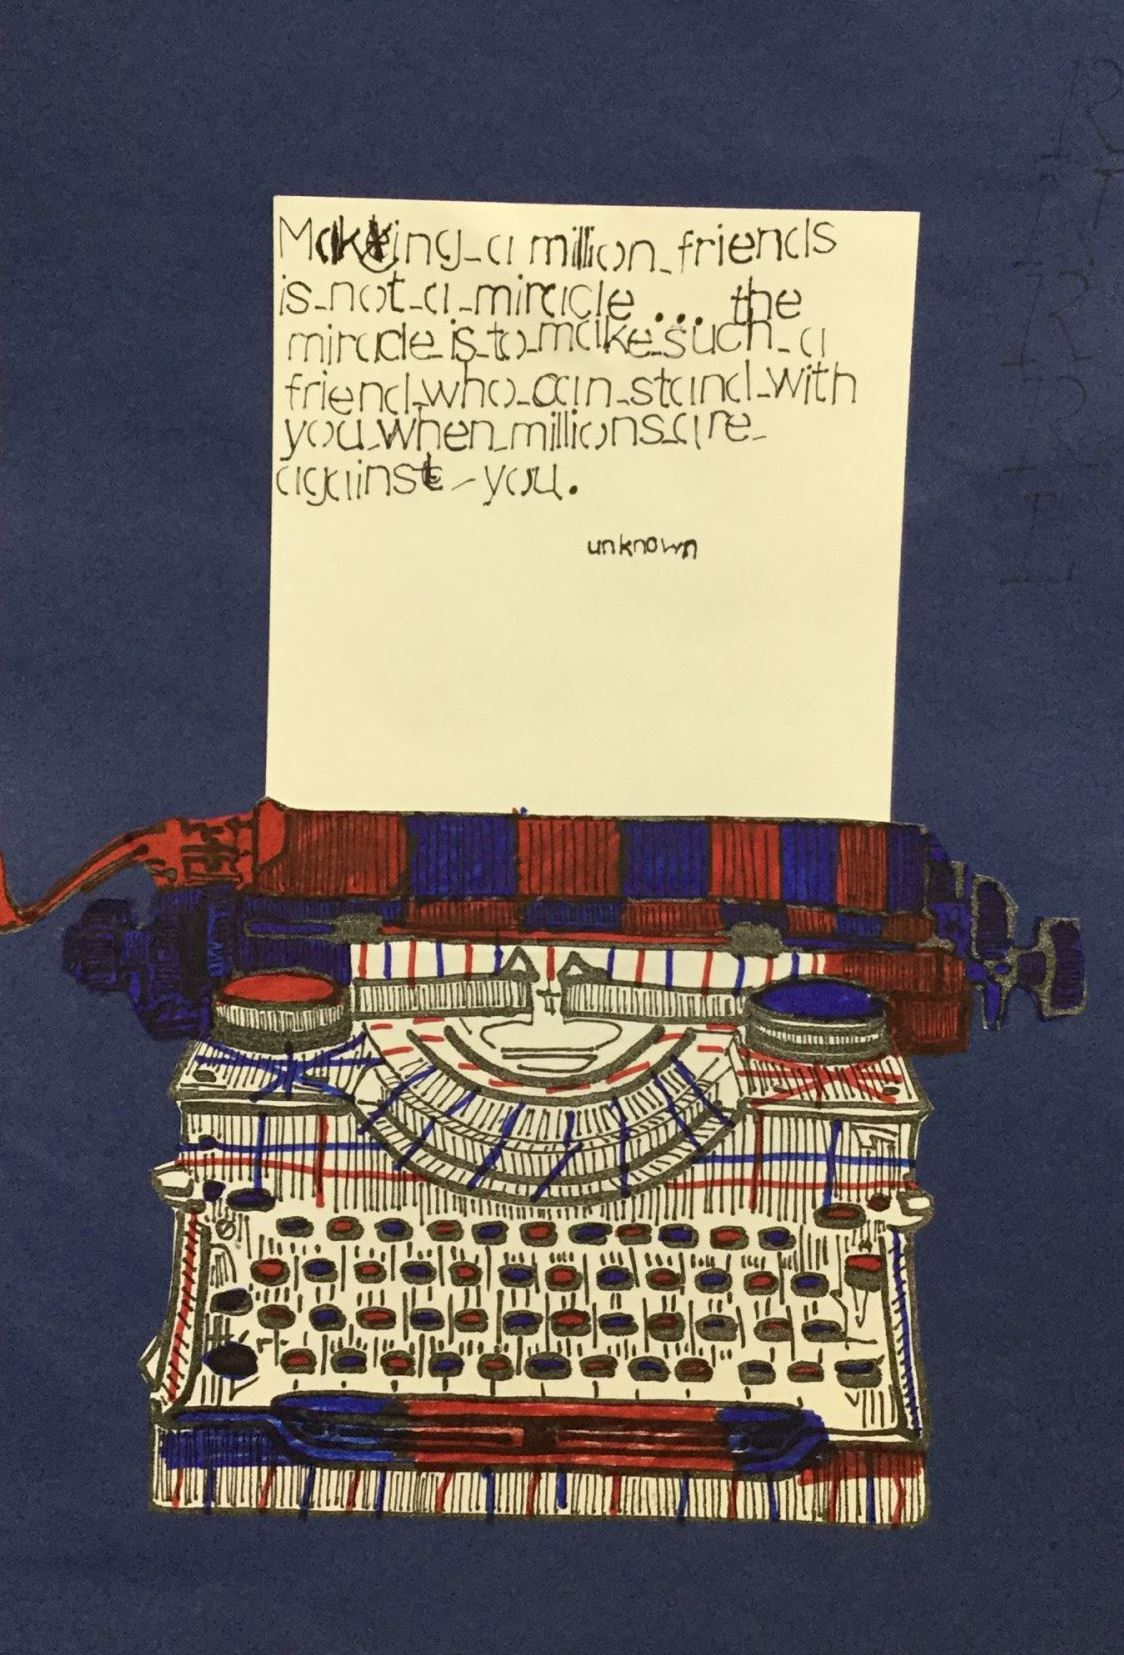 Making a million friends
is not a miracle... the
miracle is to make such a
friend who can stand with
you when millions are
against you.
unknown